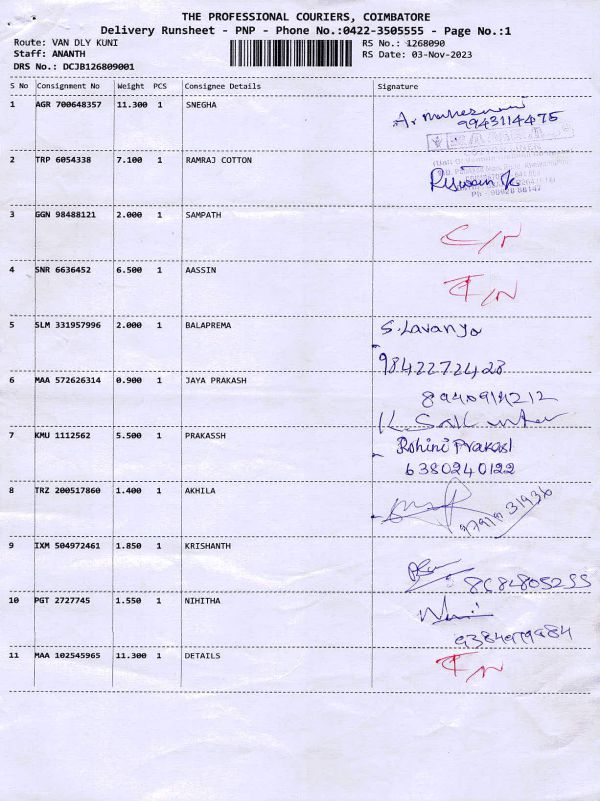 THE PROFESSIONAL COURIERS, COIMBATORE
Delivery Runsheet - PNP - Phone No.:0422-3505555 - Page No.:1
Route: VAN DLY KUNI RS No.: 1268090
Staff: ANANTH RS Date: 03-Nov-2023
DRS No.: DCJB126809001
S No Consignment No Weight PCS Consignee Details Signature
1 AGR 700648357 11.300 1 SNEGHA
9943114475
2 TRP 6054338 7.100 1 RAMRAJ COTTON
3 GGN 98488121 2.000 1 SAMPATH C/N
4 SNR 6636452 6.500 1 AASSIN
5 SLM 331957996 2.000 1 BALAPREMA S.Lavanya
9842272428
6 MAA 572626314 0.900 1 JAYA PRAKASH
7 KMU 1112562 5.500 1 PRAKASSH Rohini Prakash
6380240122
8 TRZ 200517860 1.400 1 AKHILA
9 IXM 504972461 1.850 1 KRISHANTH
10 PGT 2727745 1.550 1 NIHITHA
11 MAA 102545965 11.300 1 DETAILS